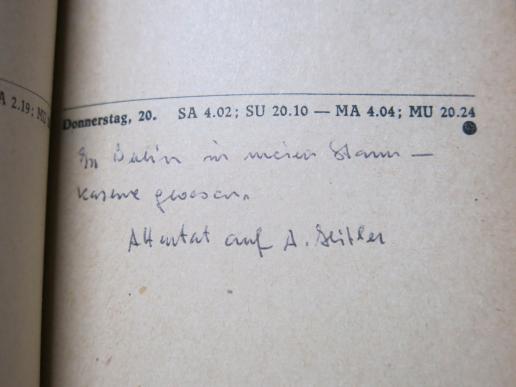 A 2.19; MU
Donnerstag, 20. SA 4.02; SU 20.10 — MA 4.04; MU 20.24
In Berlin in meiner Stamm-
kaserne gewesen.
Attentat auf A. Hitler